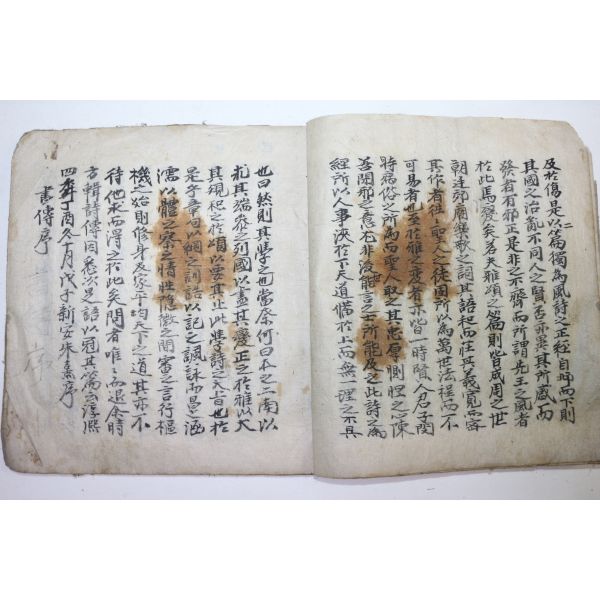 及於傷是以二篇獨爲風詩之正經自邶而下則
其國之治亂不同人之賢否亦異其所感而
發者有邪正是非之不齊而所謂先王之風者
於此焉變矣若夫雅頌之篇則皆成周之世
朝廷郊廟樂歌之詞其語和而莊其義寬而密
其作者往〻聖人之徒固所以爲萬世法程而不
可易者也至於雅之變者亦皆一時賢人君子閔
時病俗之所爲而聖人取之其忠厚惻怛之心陳
善閉邪之意尤非後世能言之士所能及之此詩之爲
經所以人事浹於下天道備於上而無一理之不具
也曰然則其學之也當奈何曰本之二南以
求其端參之列國以盡其變正之於雅以大
其規和之於頌以要其止此學詩之大旨也於
是乎章句以綱之訓詁以紀之諷詠而昌之涵
濡以體之察之情性隱微之間審之言行樞
機之始則修身及家平均天下之道其亦不
待他求而得之於此矣問者唯〻而退余時
方輯詩傳因悉次是語以冠其篇云淳熙
四年丁酉冬十月戊子新安朱熹序
書傳序